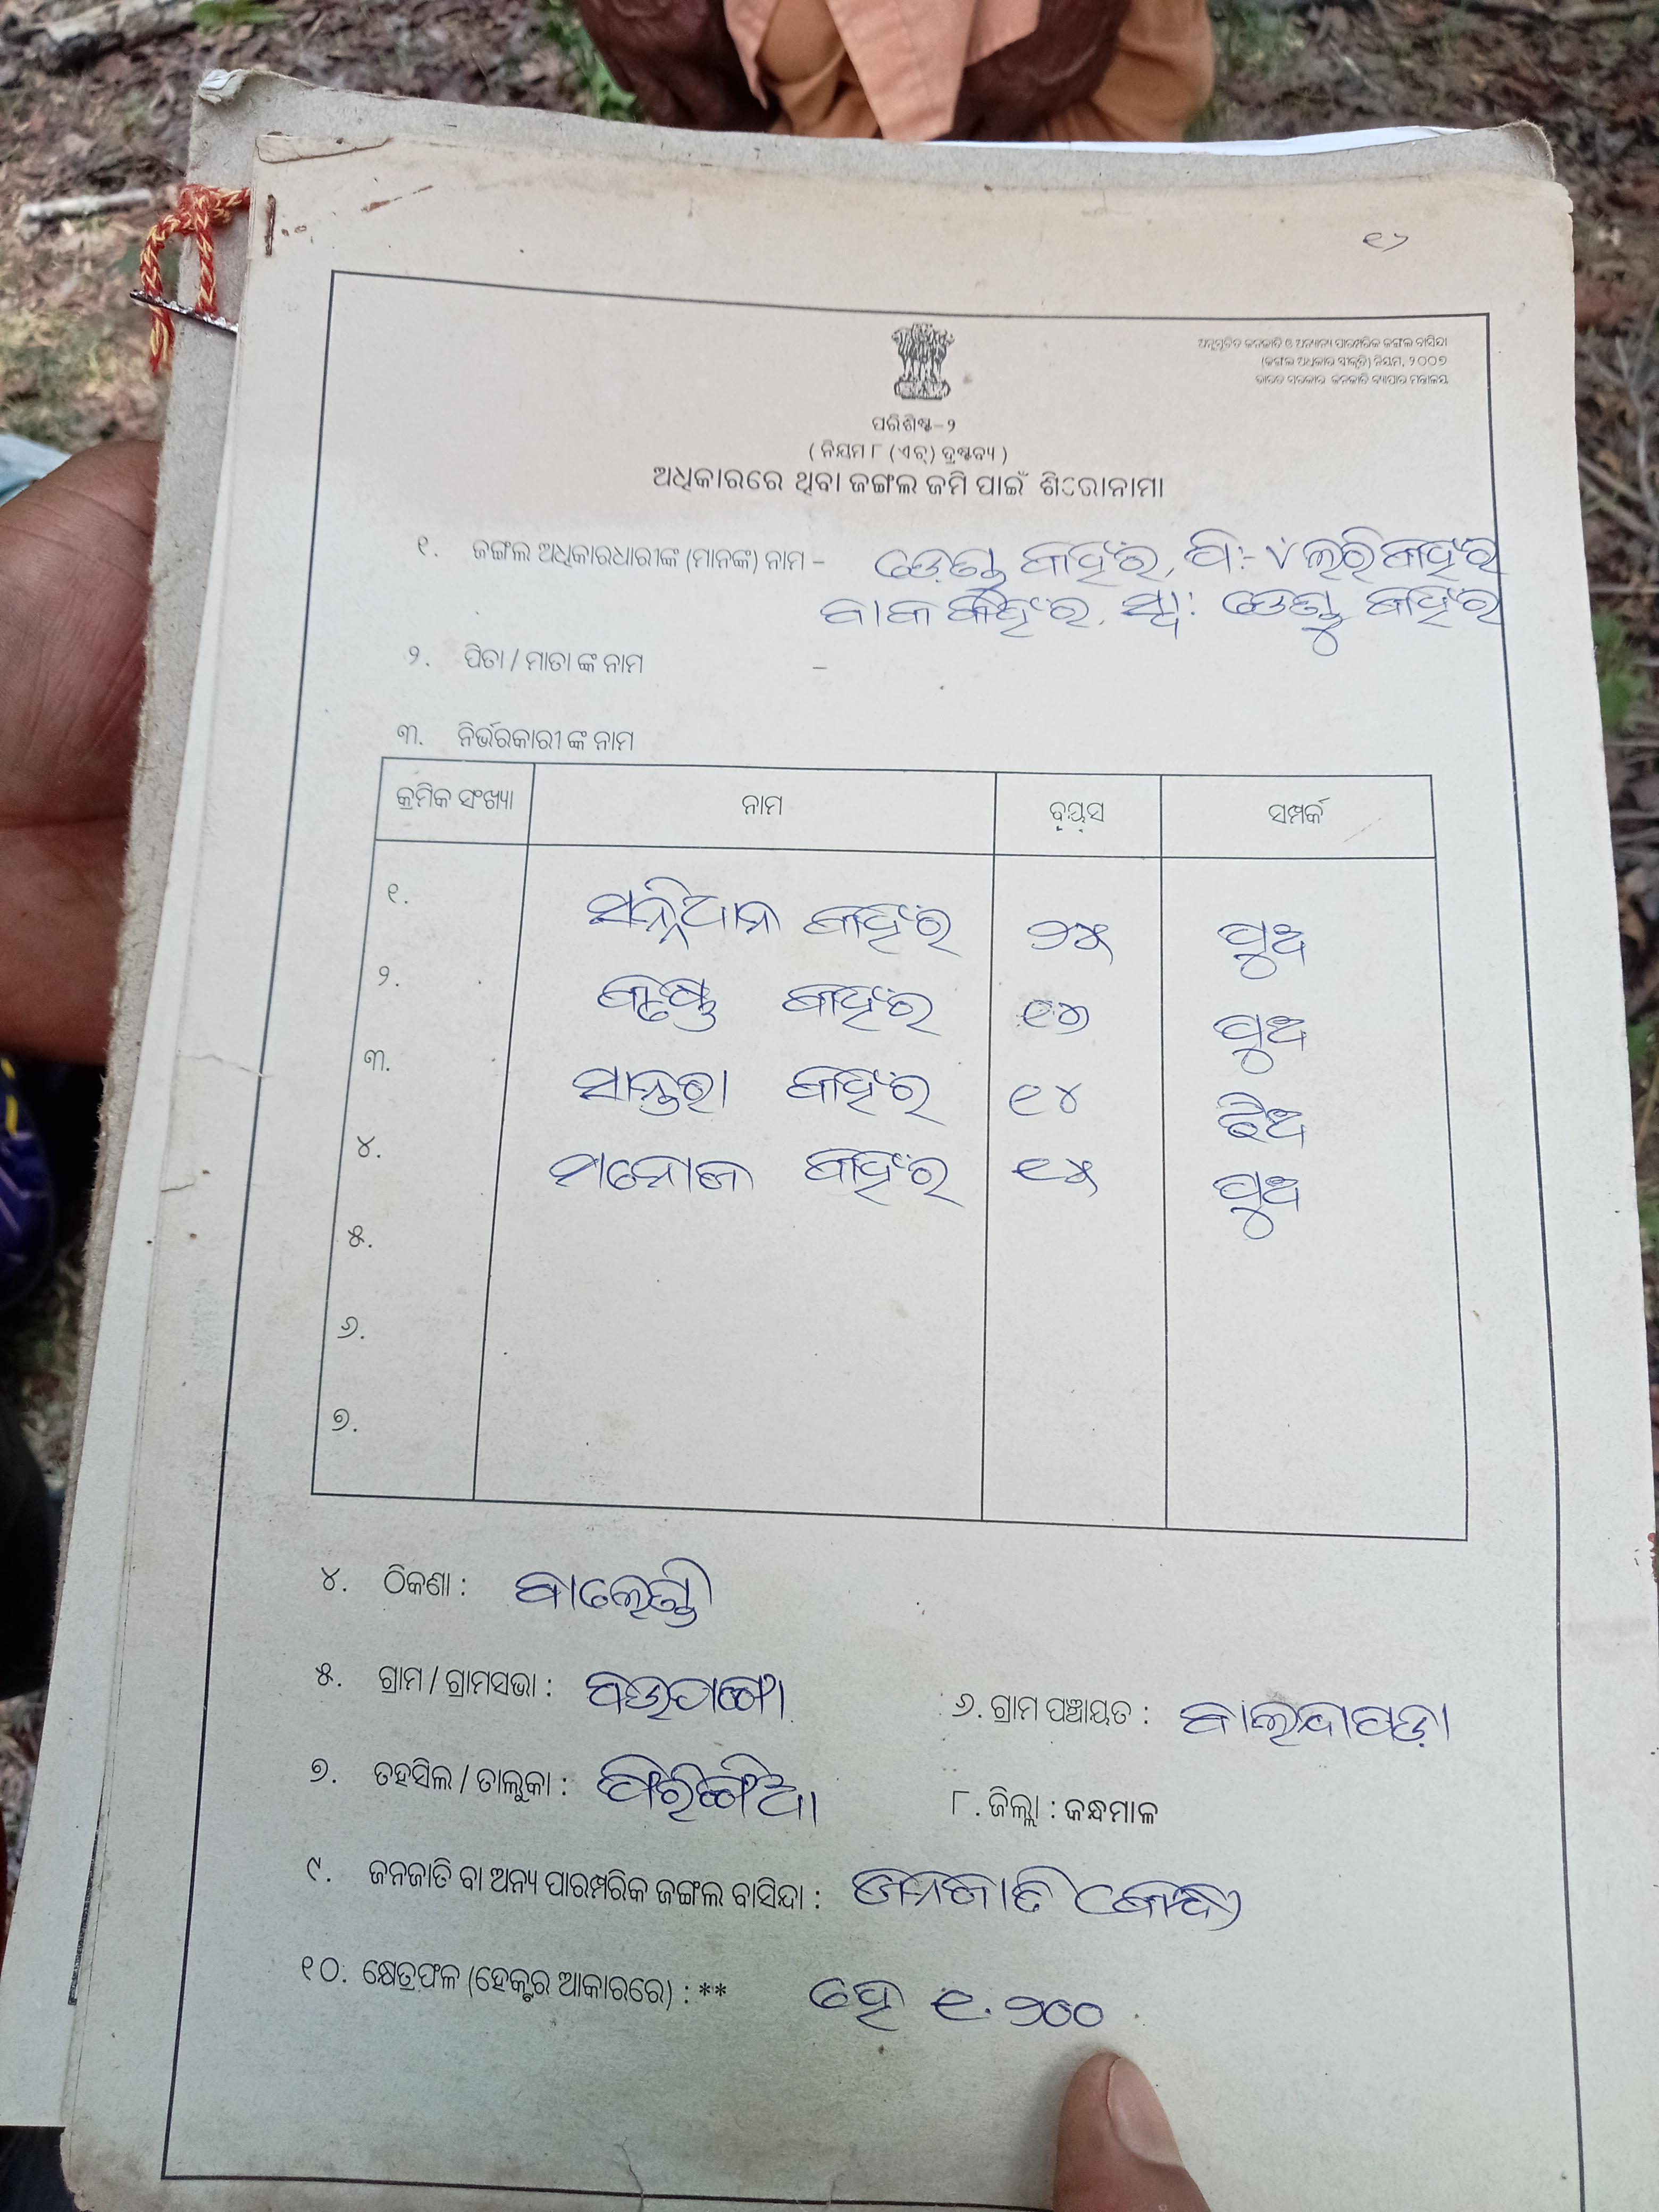 ୧୨
ଅନୁସୂଚିତ ଜନଜାତି ଓ ଅନ୍ୟାନ୍ୟ ପାରମ୍ପରିକ ଜଙ୍ଗଲ ବାସିନ୍ଦା
(ଜଙ୍ଗଲ ଅଧିକାର ସ୍ୱୀକୃତି) ନିୟମ, ୨୦୦୭
ଭାରତ ସରକାର ଜନଜାତି ବ୍ୟାପାର ମନ୍ତ୍ରାଳୟ
ପରିଶିଷ୍ଟ-୨
( ନିୟମ ୮ (ଏଚ୍) ଦ୍ରଷ୍ଟବ୍ୟ )
ଅଧିକାରରେ ଥିବା ଜଙ୍ଗଲ ଜମି ପାଇଁ ଶିରୋନାମା
୧. ଜଙ୍ଗଲ ଅଧିକାରଧାରୀଙ୍କ (ମାନଙ୍କ) ନାମ –
କହଁର, ପି:- କହଁର
କହଁର, ସ୍ୱା: କହଁର
୨. ପିତା / ମାତା ଙ୍କ ନାମ –
୩. ନିର୍ଭରକାରୀ ଙ୍କ ନାମ
କ୍ରମିକ ସଂଖ୍ୟା ନାମ ବୟସ ସମ୍ପର୍କ
୧. ସନ୍ନିଧାନ କହଁର ୨୫ ପୁଅ
୨. କହଁର ପୁଅ
୩. କହଁର ୧୪ ଝିଅ
୪. ମନୋଜ କହଁର ୧୫ ପୁଅ
୫.
୬.
୭.
୪. ଠିକଣା :
୫. ଗ୍ରାମ / ଗ୍ରାମସଭା : ୬. ଗ୍ରାମ ପଞ୍ଚାୟତ : ବାଲନ୍ଦାପଡ଼ା
୭. ତହସିଲ / ତାଲୁକା : ଫିରିଙ୍ଗିଆ ୮. ଜିଲ୍ଲା : କନ୍ଧମାଳ
୯. ଜନଜାତି ବା ଅନ୍ୟ ପାରମ୍ପରିକ ଜଙ୍ଗଲ ବାସିନ୍ଦା : ଜନଜାତି (କନ୍ଧ)
୧୦. କ୍ଷେତ୍ରଫଳ (ହେକ୍ଟର ଆକାରରେ) : ** ହେ ୧.୨୦୦